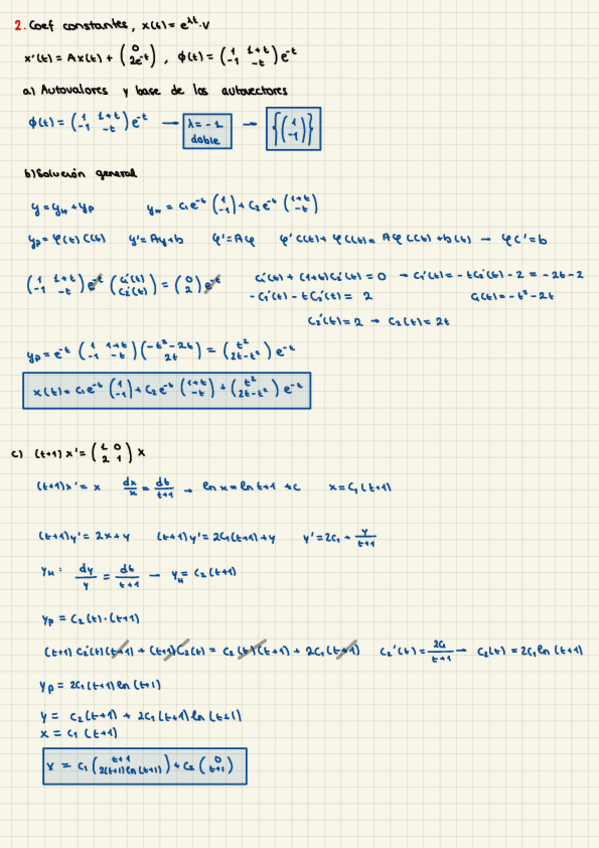 2. Coef constantes, x(t) = e^{λt}·v
x'(t) = Ax(t) + (0 ; 2e^{-t}), ϕ(t) = (1 1+t ; -1 -t) e^{-t}
a) Autovalores y base de los autovectores
ϕ(t) = (1 1+t ; -1 -t) e^{-t} → λ = -1 doble → {(1 ; -1)}
b) Solución general
y = y_H + y_p y_H = c_1 e^{-t} (1 ; -1) + c_2 e^{-t} (1+t ; -t)
y_p = φ(t) C(t) y' = Ay + b φ' = Aφ φ' C(t) + φ C'(t) = Aφ C(t) + b(t) → φ C' = b
(1 1+t ; -1 -t) e^{-t} (c_1'(t) ; c_2'(t)) = (0 ; 2) e^{-t} c_1'(t) + (1+t) c_2'(t) = 0 → c_1'(t) = -t c_2'(t) - 2 = -2t - 2
-c_1'(t) - t c_2'(t) = 2 c_1(t) = -t² - 2t
c_2'(t) = 2 → c_2(t) = 2t
y_p = e^{-t} (1 1+t ; -1 -t) (-t² - 2t ; 2t) = (t² ; 2t - t²) e^{-t}
x(t) = c_1 e^{-t} (1 ; -1) + c_2 e^{-t} (1+t ; -t) + (t² ; 2t - t²) e^{-t}
c) (t+1) x' = (1 0 ; 2 1) x
(t+1) x' = x dx/x = dt/t+1 → ln x = ln t+1 + c x = c_1 (t+1)
(t+1) y' = 2x + y (t+1) y' = 2c_1 (t+1) + y y' = 2c_1 + y/t+1
y_H: dy/y = dt/t+1 → y_H = c_2 (t+1)
y_p = c_2(t)·(t+1)
(t+1) c_2'(t) (t+1) + (t+1) c_2(t) = c_2(t) (t+1) + 2c_1 (t+1) c_2'(t) = 2c_1/t+1 → c_2(t) = 2c_1 ln(t+1)
y_p = 2c_1 (t+1) ln(t+1)
y = c_2 (t+1) + 2c_1 (t+1) ln(t+1)
x = c_1 (t+1)
x = c_1 (t+1 ; 2(t+1) ln(t+1)) + c_2 (0 ; t+1)